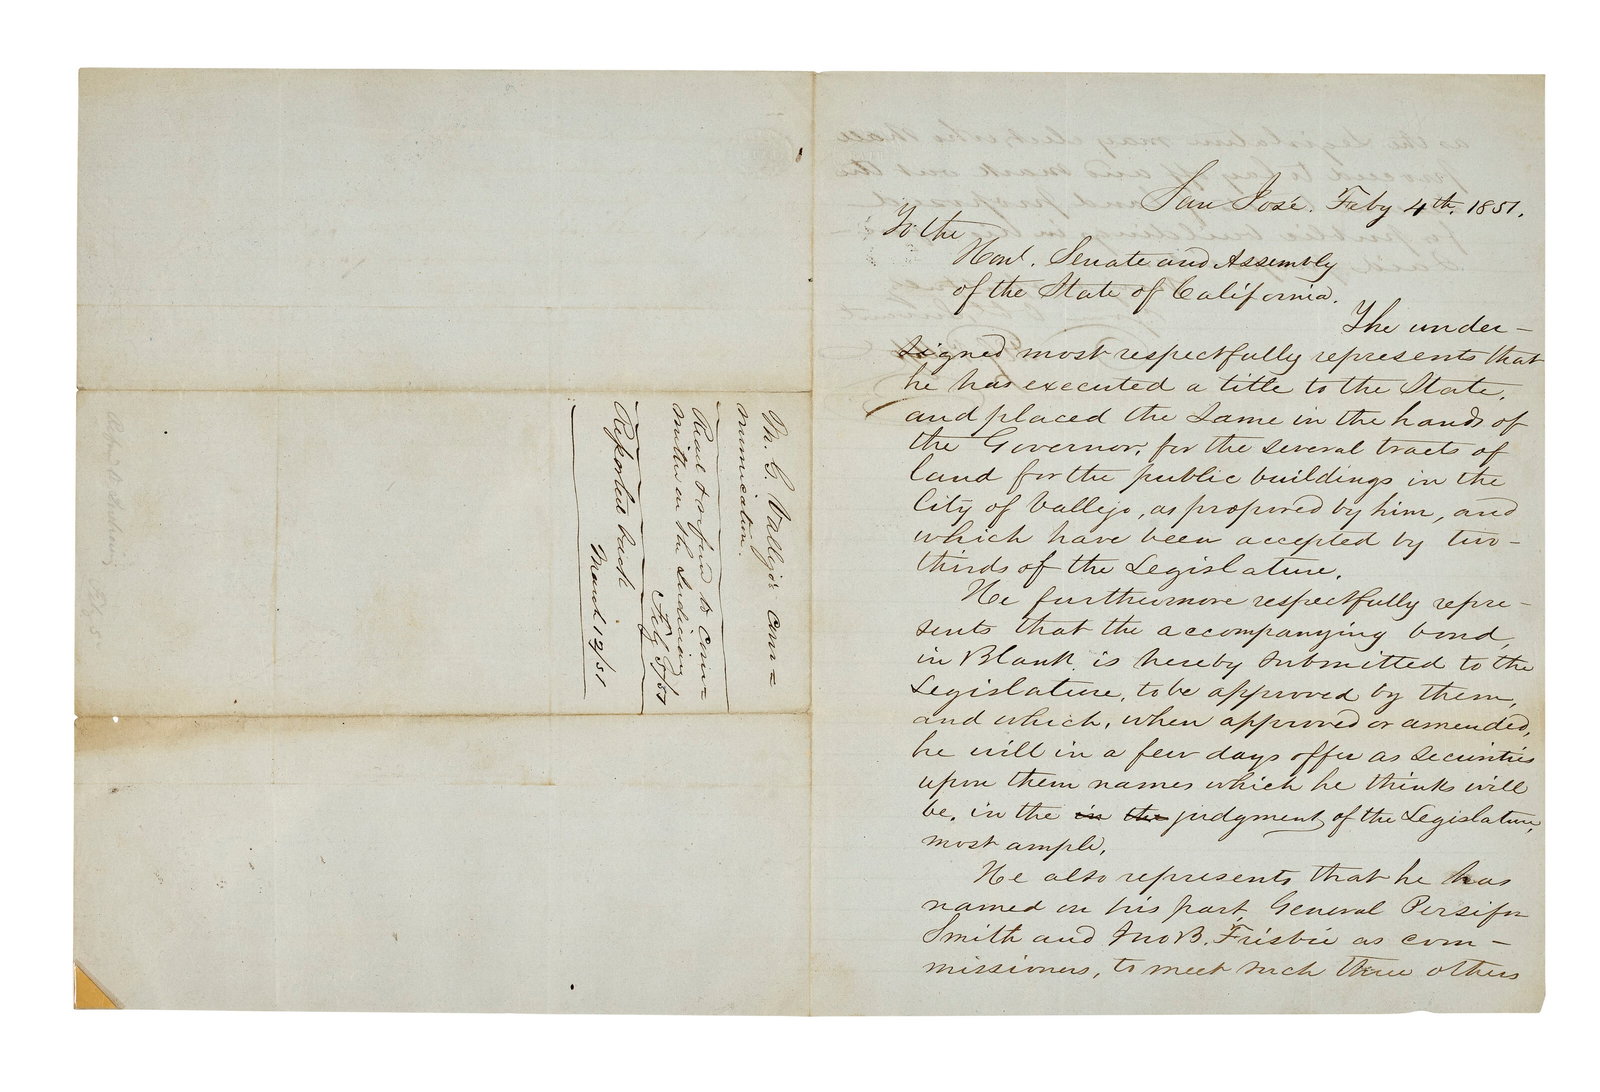 M. G. Vallejo's Com=
munication.
Read & refered to Com=
mittee on The Judiciary
Feby 5/51
Reported back
March 12/51
San José. Feby 4th. 1851.
To the
Honl. Senate and Assembly
of the State of California.
The under-
signed most respectfully represents that
he has executed a title to the State,
and placed the same in the hands of
the Governor, for the several tracts of
land for the public buildings in the
City of Vallejo, as proposed by him, and
which have been accepted by two-
thirds of the Legislature.
He furthermore respectfully repre-
sents that the accompanying bond,
in Blank, is hereby submitted to the
Legislature, to be approved by them,
and which, when approved or amended,
he will in a few days offer as securities
upon them names which he thinks will
be, in the in the judgment of the Legislature,
most ample.
He also represents that he has
named on his part, General Persifor
Smith and Jno B. Frisbie as com-
missioners, to meet such three others